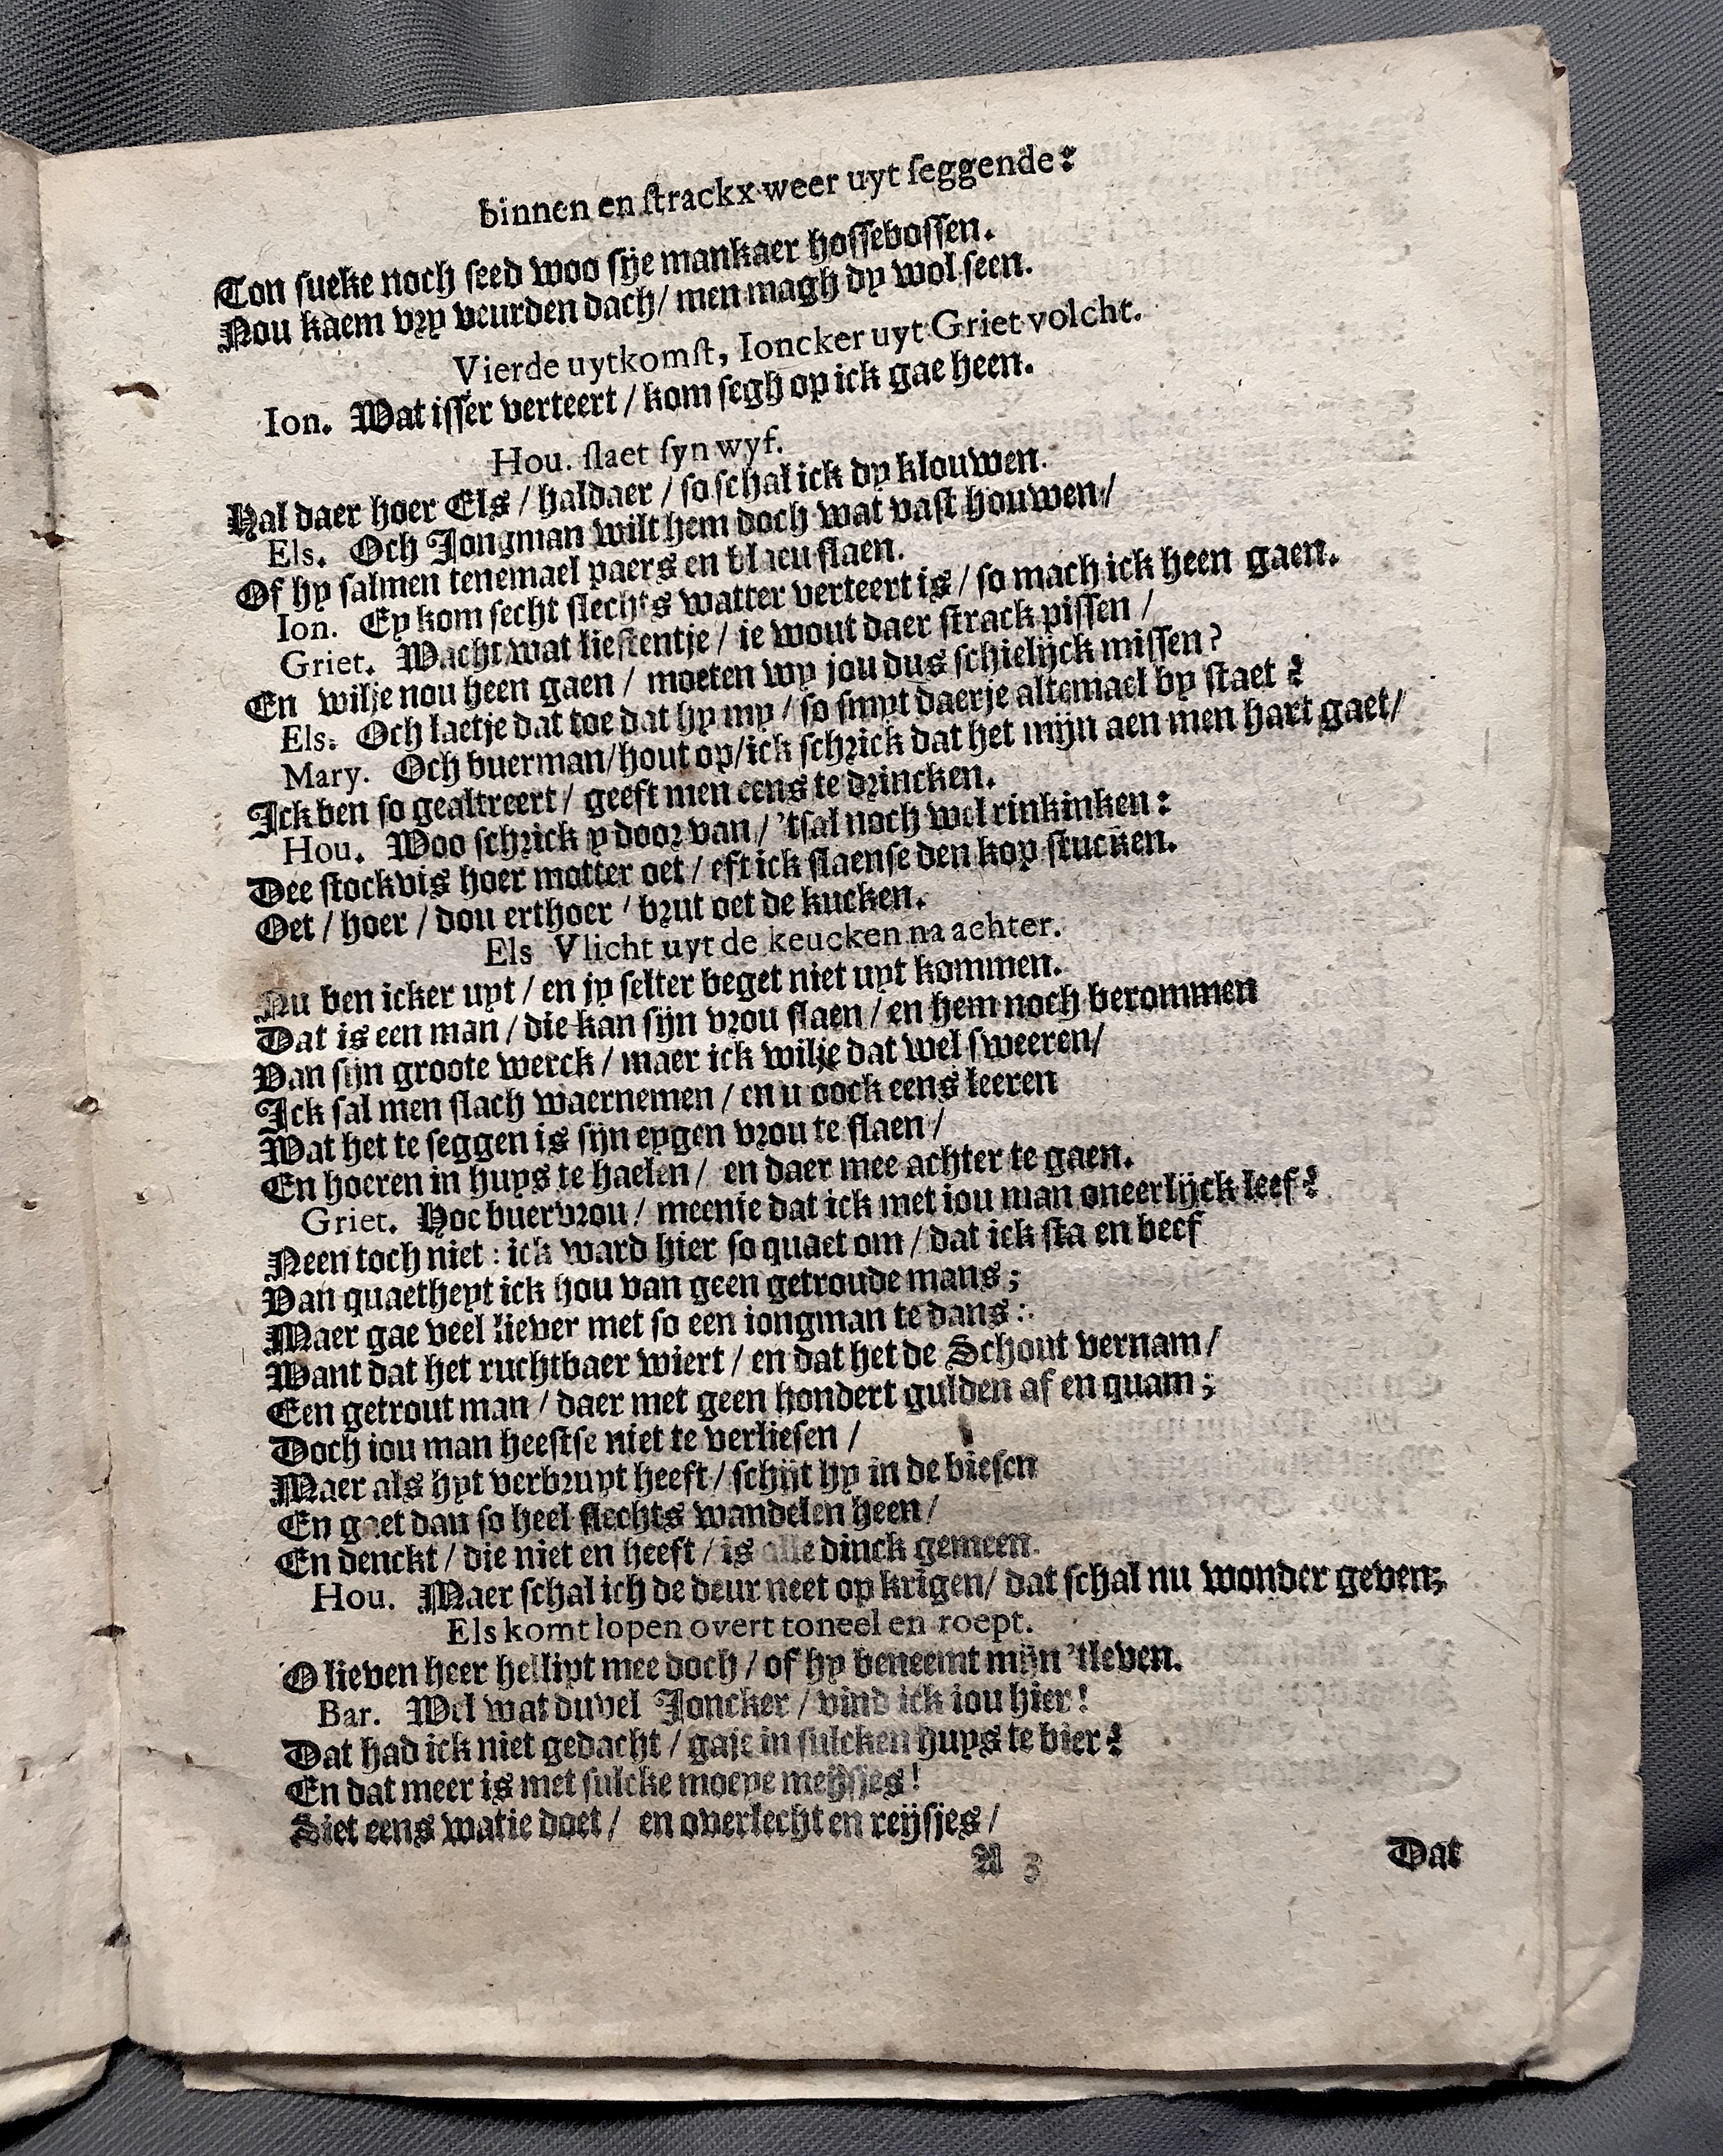 binnen en ſtrackx weer uyt ſeggende:
Ton ſueke noch ſeed woo ſye mankaer hoſſeboſſen.
Nou kaem vry veurden dach / men magh dy wol ſeen.
Vierde uytkomſt, Ioncker uyt Griet volcht.
Ion. Wat iſſer verteert / kom ſegh op ick gae heen.
Hou. ſlaet ſyn wyf.
Hal daer hoer Els / haldaer / ſo ſchal ick dy klouwen.
Els. Och Jongman wilt hem doch wat vaſt houwen /
Of hy ſalmen tenemael paers en blaeu ſlaen.
Ion. Ey kom ſecht ſlechts watter verteert is / ſo mach ick heen gaen.
Griet. Wacht wat lieſtentje / ie wout daer ſtrack piſſen /
En wilje nou heen gaen / moeten wy jou dus ſchielijck miſſen?
Els. Och laetje dat toe dat hy my / ſo ſmyt daerje altemael by ſtaet?
Mary. Och buerman / hout op / ick ſchrick dat het mijn aen men hart gaet /
Ick ben ſo gealtreert / geeft men eens te drincken.
Hou. Woo ſchrick y door van / 'tſal noch wel rinkinken:
Dee ſtockvis hoer motter oet / eft ick ſlaenſe den kop ſtucken.
Oet / hoer / dou erthoer / brut oet de kucken.
Els Vlicht uyt de keucken na achter.
Nu ben icker uyt / en jy ſelter beget niet uyt kommen.
Dat is een man / die kan ſijn vrou ſlaen / en hem noch berommen
Van ſijn groote werck / maer ick wilje dat wel ſweeren /
Ick ſal men ſlach waernemen / en u oock eens leeren
Wat het te ſeggen is ſijn eygen vrou te ſlaen /
En hoeren in huys te haelen / en daer mee achter te gaen.
Griet. Hoe buervrou / meenje dat ick met iou man oneerlijck leef?
Neen toch niet: ick ward hier ſo quaet om / dat ick ſta en beef
Van quaetheyt ick hou van geen getroude mans;
Maer gae veel liever met ſo een iongman te dans:
Want dat het ruchtbaer wiert / en dat het de Schout vernam /
Een getrout man / daer met geen hondert gulden af en quam;
Doch iou man heeftſe niet te verlieſen /
Maer als hyt verbruyt heeft / ſchijt hy in de bieſen
En gaet dan ſo heel ſlechts wandelen heen /
En denckt / die niet en heeft / is alle dinck gemeen.
Hou. Maer ſchal ich de deur neet op krigen / dat ſchal nu wonder geven;
Els komt lopen overt toneel en roept.
O lieven heer hellipt mee doch / of hy beneemt mijn 'tleven.
Bar. Wel wat duvel Joncker / vind ick iou hier!
Dat had ick niet gedacht / gaje in ſulcken huys te bier?
En dat meer is met ſulcke moeye meijſjes!
Siet eens watie doet / en overlecht en reijſjes /
A 3
Dat